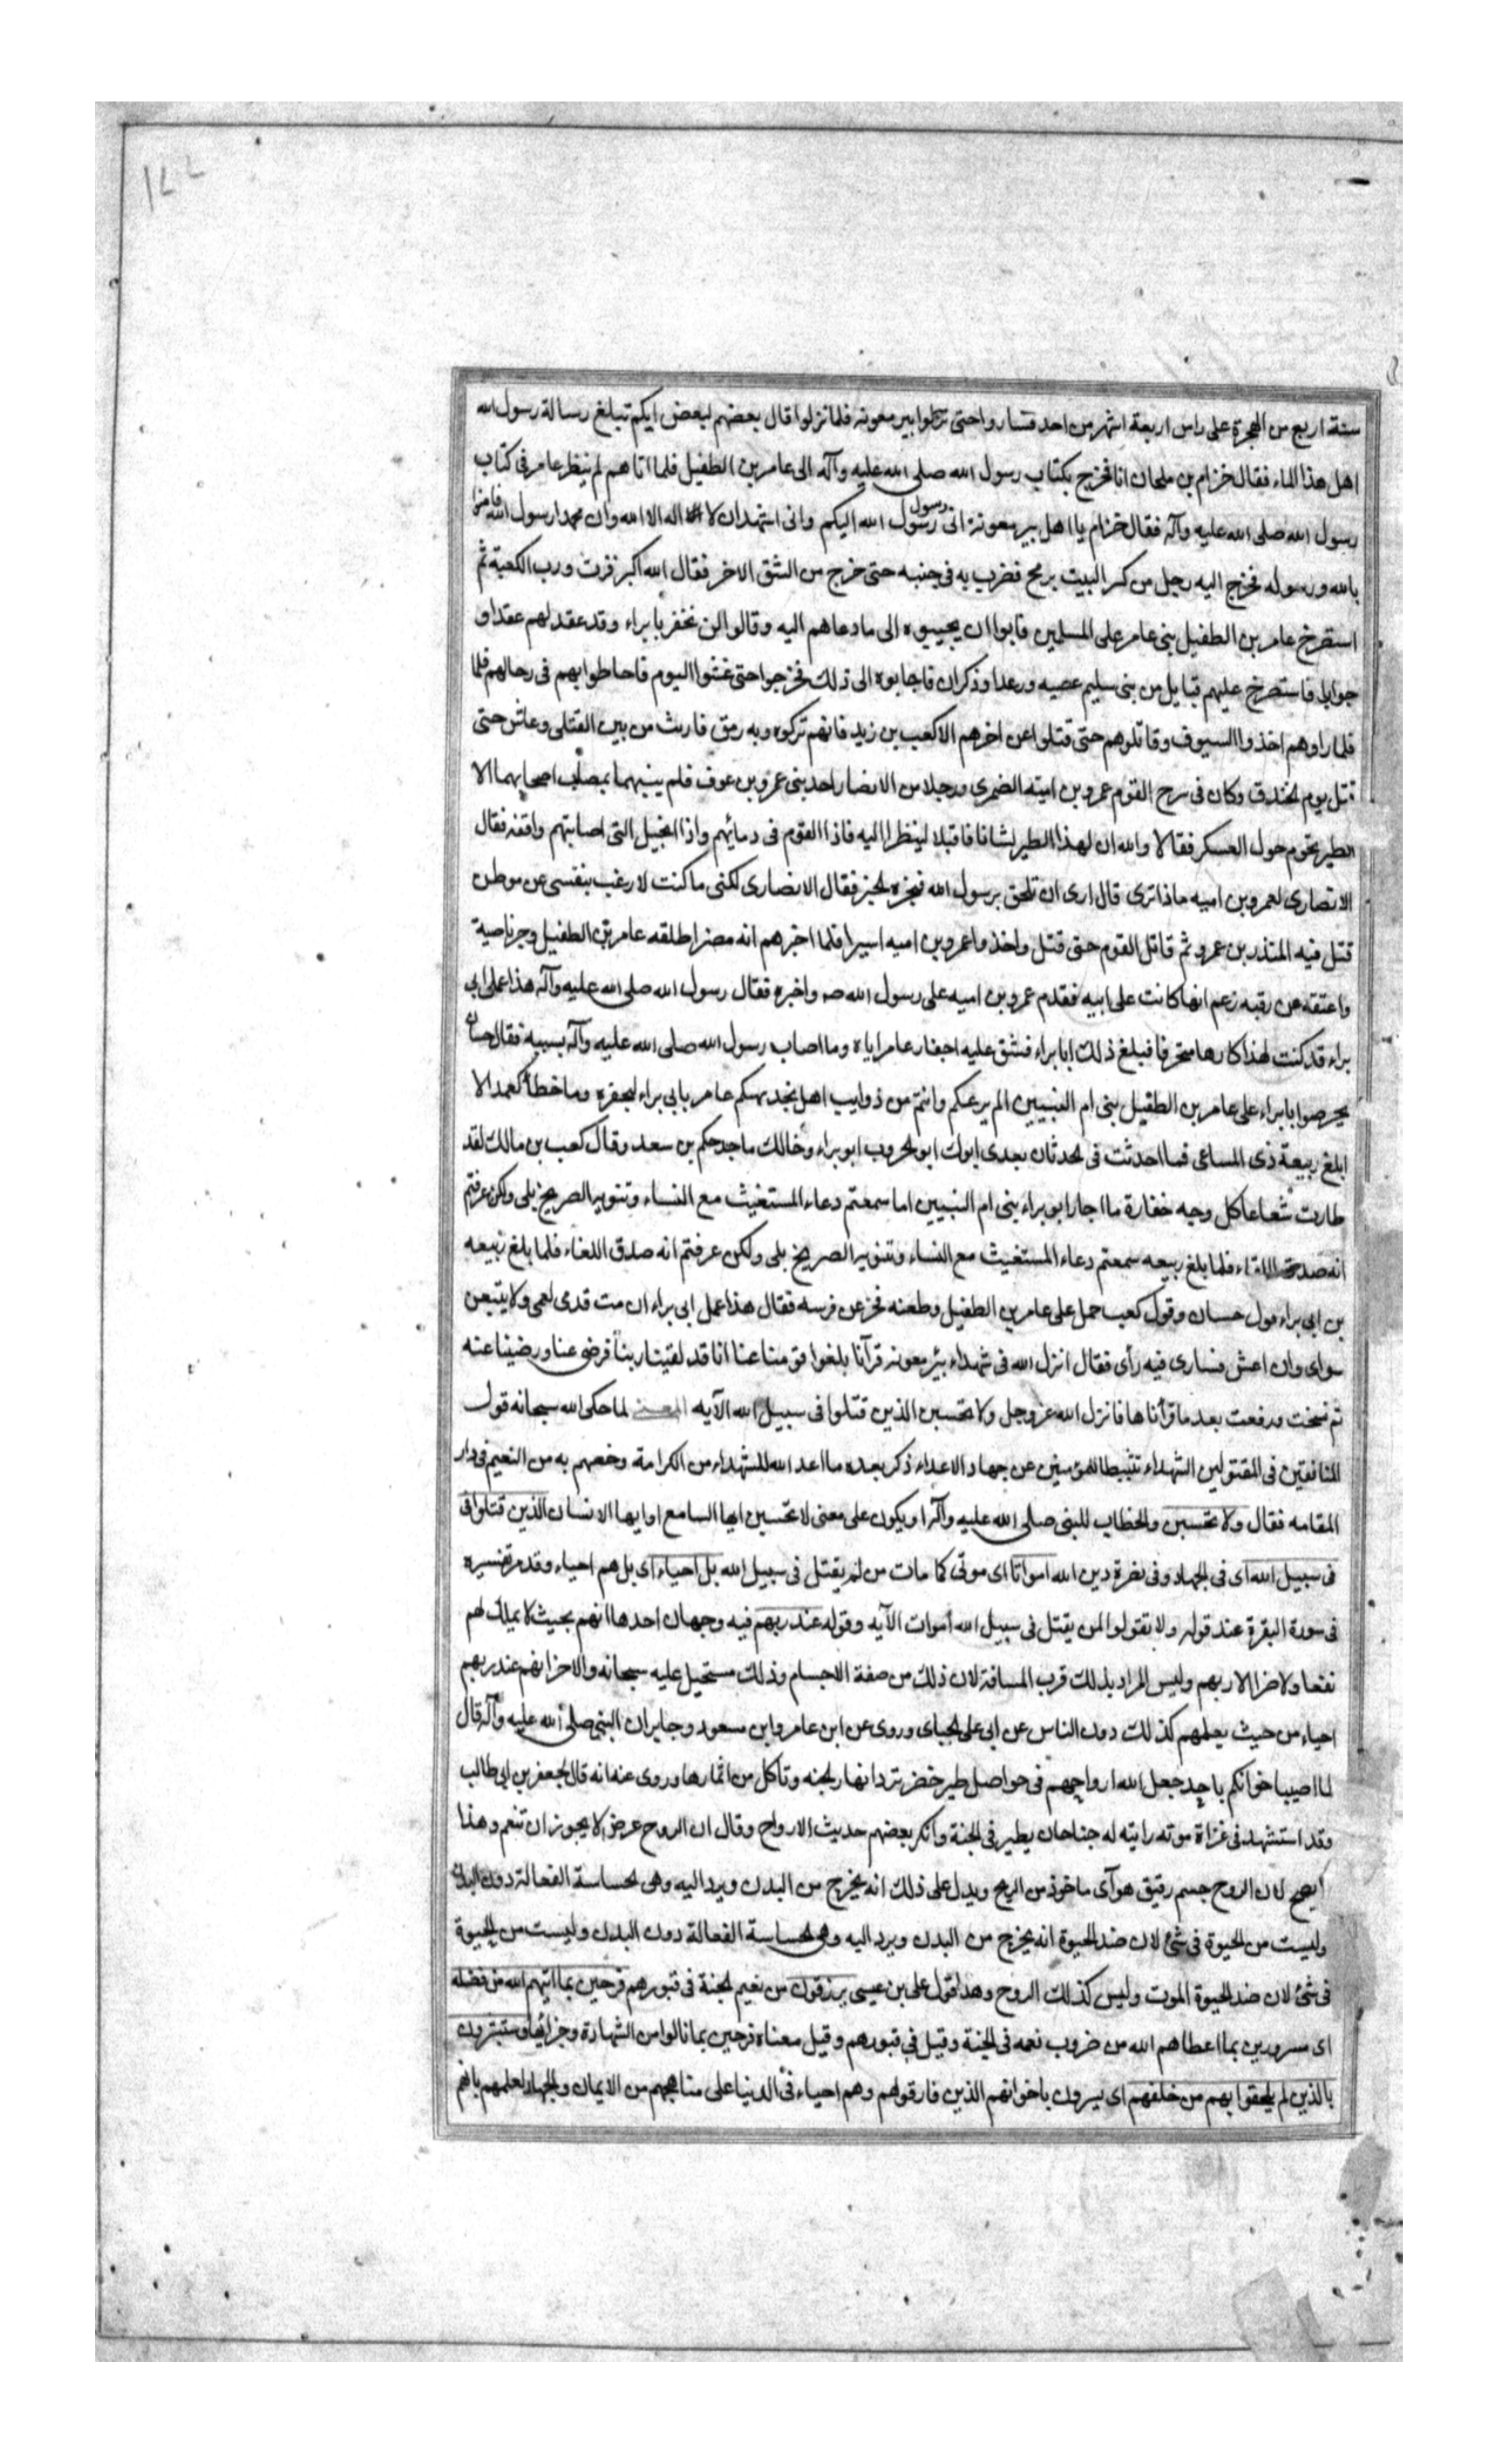 ١٧٧
سنة اربع من الهجرة على راس اربعة اشهر من احد فساروا حتى نزلوا بير معونه فلما نزلوا قال بعضهم لبعض ايكم تبلغ رسالة رسول الله
اهل هذا الماء فقال خزام بن ملحان انا فخرج بكتاب رسول الله صلى الله عليه وآله الى عامر بن الطفيل فلما اتاهم لم ينظر عامر فى كتاب
رسول الله صلى الله عليه وآله فقال خزام يا اهل بير معونة انى رسول رسول الله اليكم وانى اشهد ان لا اله الا الله وان محمدا رسول الله فامنوا
بالله ورسوله فخرج اليه رجل من كسر البيت برمح فضرب به فى جنبه حتى خرج من الشق الاخر فقال الله اكبر فزت ورب الكعبة ثم
استصرخ عامر بن الطفيل بنى عامر على المسلمين فابوا ان يجيبوه الى ما دعاهم اليه وقالوا لن نخفر بابراء وقد عقد لهم عقدا و
جوابا فاستصرخ عليهم قبايل من بنى سليم عصيه ورعدا وذكران فاجابوه الى ذلك فخرجوا حتى غشوا اليوم فاحاطوا بهم فى رحالهم فلما
فلما راوهم اخذوا السيوف وقاتلوهم حتى قتلوا عن اخرهم الا كعب بن زيد فانهم تركوه وبه رمق فارث من بين القتلى وعاش حتى
قتل يوم الخندق وكان فى سرح القوم عمرو بن امية الضمرى ورجلا من الانصار احد بنى عمرو بن عوف فلم ينبهما بمصاب اصحابهما الا
الطير تحوم حول العسكر فقالا والله ان لهذا الطير لشانا فاقبلا لينظرا اليه فاذا القوم فى دمائهم واذا الخيل التى اصابتهم واقفه فقال
الانصارى لعمرو بن اميه ماذا ترى قال ارى ان تلحق برسول الله فنجزه بخبر فقال الانصارى لكنى ما كنت لارغب بنفسى عن موطن
قتل فيه المنذر بن عمرو ثم قاتل القوم حتى قتل واخذوا عمرو بن اميه اسيرا فلما اخبرهم انه مضر اطلقه عامر بن الطفيل وجز ناصية
واعتقه عن رقبه زعم انها كانت على ابيه فقدم عمرو بن اميه على رسول الله صه واخبره فقال رسول الله صلى الله عليه وآله هذا عمل ابى
براء قد كنت لهذا كارها متخرفا فبلغ ذلك ابا براء فشق عليه اخفار عامر اياه وما اصاب رسول الله صلى الله عليه وآله بسببه فقال حسان
يحرصوا بابراء على عامر بن الطفيل بنى ام النبيين الم يرعكم وانتم من ذوايب اهل نجد بهكم عامر بابى براء ليخفره وما خطأ كعمد الا
ابلغ ربيعة ذى المساعى فما احدثت فى الحدثان بعدى ابوك ابو الحروب ابو براء وخالك ماجد حكم بن سعد وقال كعب بن مالك لقد
طارت شعاعا كل وجه خفارة ما اجار ابو براء بنى ام النبيين اما سمعتم دعاء المستغيث مع النساء وتنوير الصريخ بلى ولكن عرفتم
انه صدق اللقاء فلما بلغ ربيعه سمعتم دعاء المستغيث مع النساء وتنوير الصريخ بلى ولكن عرفتم انه صدق اللقاء فلما بلغ ربيعه
بن ابى براء قول حسان وقول كعب حمل على عامر بن الطفيل وطعنه فخر عن فرسه فقال هذا عمل ابى براء ان مت فدمى لعمى ولا يتبعن
سواى وان اعش فسارى فيه رأى فقال انزل الله فى شهداء بئر معونه قرآنا بلغوا قومنا عنا انا قد لقينا ربنا فرضى عنا ورضينا عنه
ثم نسخت ورفعت بعد ما قرأناها فانزل الله عز وجل ولا تحسبن الذين قتلوا فى سبيل الله الآيه المعنى لما حكى الله سبحانه قول
المنافقين فى المقتولين الشهداء تثبيطا للمؤمنين عن جهاد الاعداء ذكر بعده ما اعد الله للشهداء من الكرامة وخصهم به من النعيم فى دار
المقامه فقال ولا تحسبن والخطاب للنبى صلى الله عليه وآله او يكون على معنى لا تحسبن ايها السامع او ايها الانسان الذين قتلوا فى
فى سبيل الله اى فى الجهاد وفى نصرة دين الله امواتا اى موتى كما مات من لم يقتل فى سبيل الله بل احياء اى بل هم احياء وقد مر تفسيره
فى سورة البقرة عند قوله ولا تقولوا لمن يقتل فى سبيل الله اموات الآيه وقوله عند ربهم فيه وجهان احدها انهم بحيث لا يملك لهم
نفعا ولا ضرا الا ربهم وليس المراد بذلك قرب المسافة لان ذلك من صفة الاجسام وذلك مستحيل عليه سبحانه والاخر انهم عند ربهم
احياء من حيث يعلمهم كذلك دون الناس عن ابى على الجباى وروى عن ابن عامر وابن مسعود وجابر ان النبى صلى الله عليه وآله قال
لما اصيب اخوانكم باحد جعل الله ارواحهم فى حواصل طير خضر ترد انهار الجنه وتأكل من اثمارها وروى عنه انه قال لجعفر بن ابى طالب
وقد استشهد فى غزاة موته رايته له جناحان يطير فى الجنة وانكر بعضهم حديث الارواح وقال ان الروح عرض لا يجوز ان تنعم وهذا
ايصح لان الروح جسم رقيق هوآى ماخوذ من الريح ويدل على ذلك انه يخرج من البدن ويرد اليه وهى الحساسة الفعالة دون البدن
وليست من الحيوة فى شئ لان ضد الحيوة انه يخرج من البدن ويرد اليه وهى الحساسة الفعالة دون البدن وليست من الحيوة
فى شئ لان ضد الحيوة الموت وليس كذلك الروح وهذا قول على بن عيسى يرزقون من نعيم الجنة فى قبورهم فرحين بما اتيهم الله من فضله
اى مسرورين بما اعطاهم الله من ضروب نعمه فى الجنة وقيل فى قبورهم وقيل معناه فرحين بما نالوا من الشهادة وجزائها وستبشرون
بالذين لم يلحقوا بهم من خلفهم اى يسرون باخوانهم الذين فارقوهم وهم احياء فى الدنيا على مناهجهم من الايمان والجهاد لعلمهم بانهم